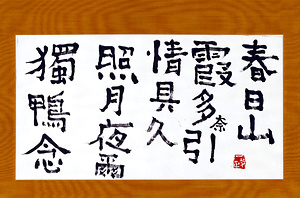 春日山
霞多奈引
情具久
照月夜爾
獨鴨念